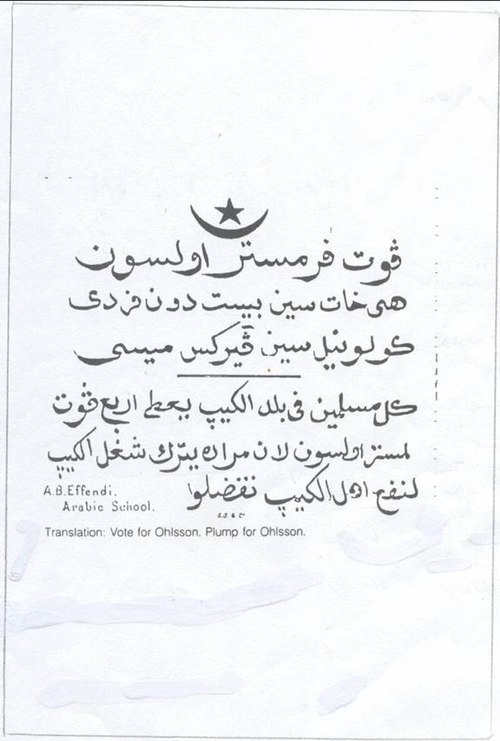 ڤوت فر مستر اولسون
هى خات سين بيست دون فر دى
كولونيل سين ڤيركس ميسى
كل مسلمين فى بلد الكيپ يعطى اربع ڤوت
لمستر اولسون لان مراده يترك شغل الكيپ
لنفع اهل الكيپ نفضلوا
A.B.Effendi.
Arabic School.
Translation: Vote for Ohlsson. Plump for Ohlsson.